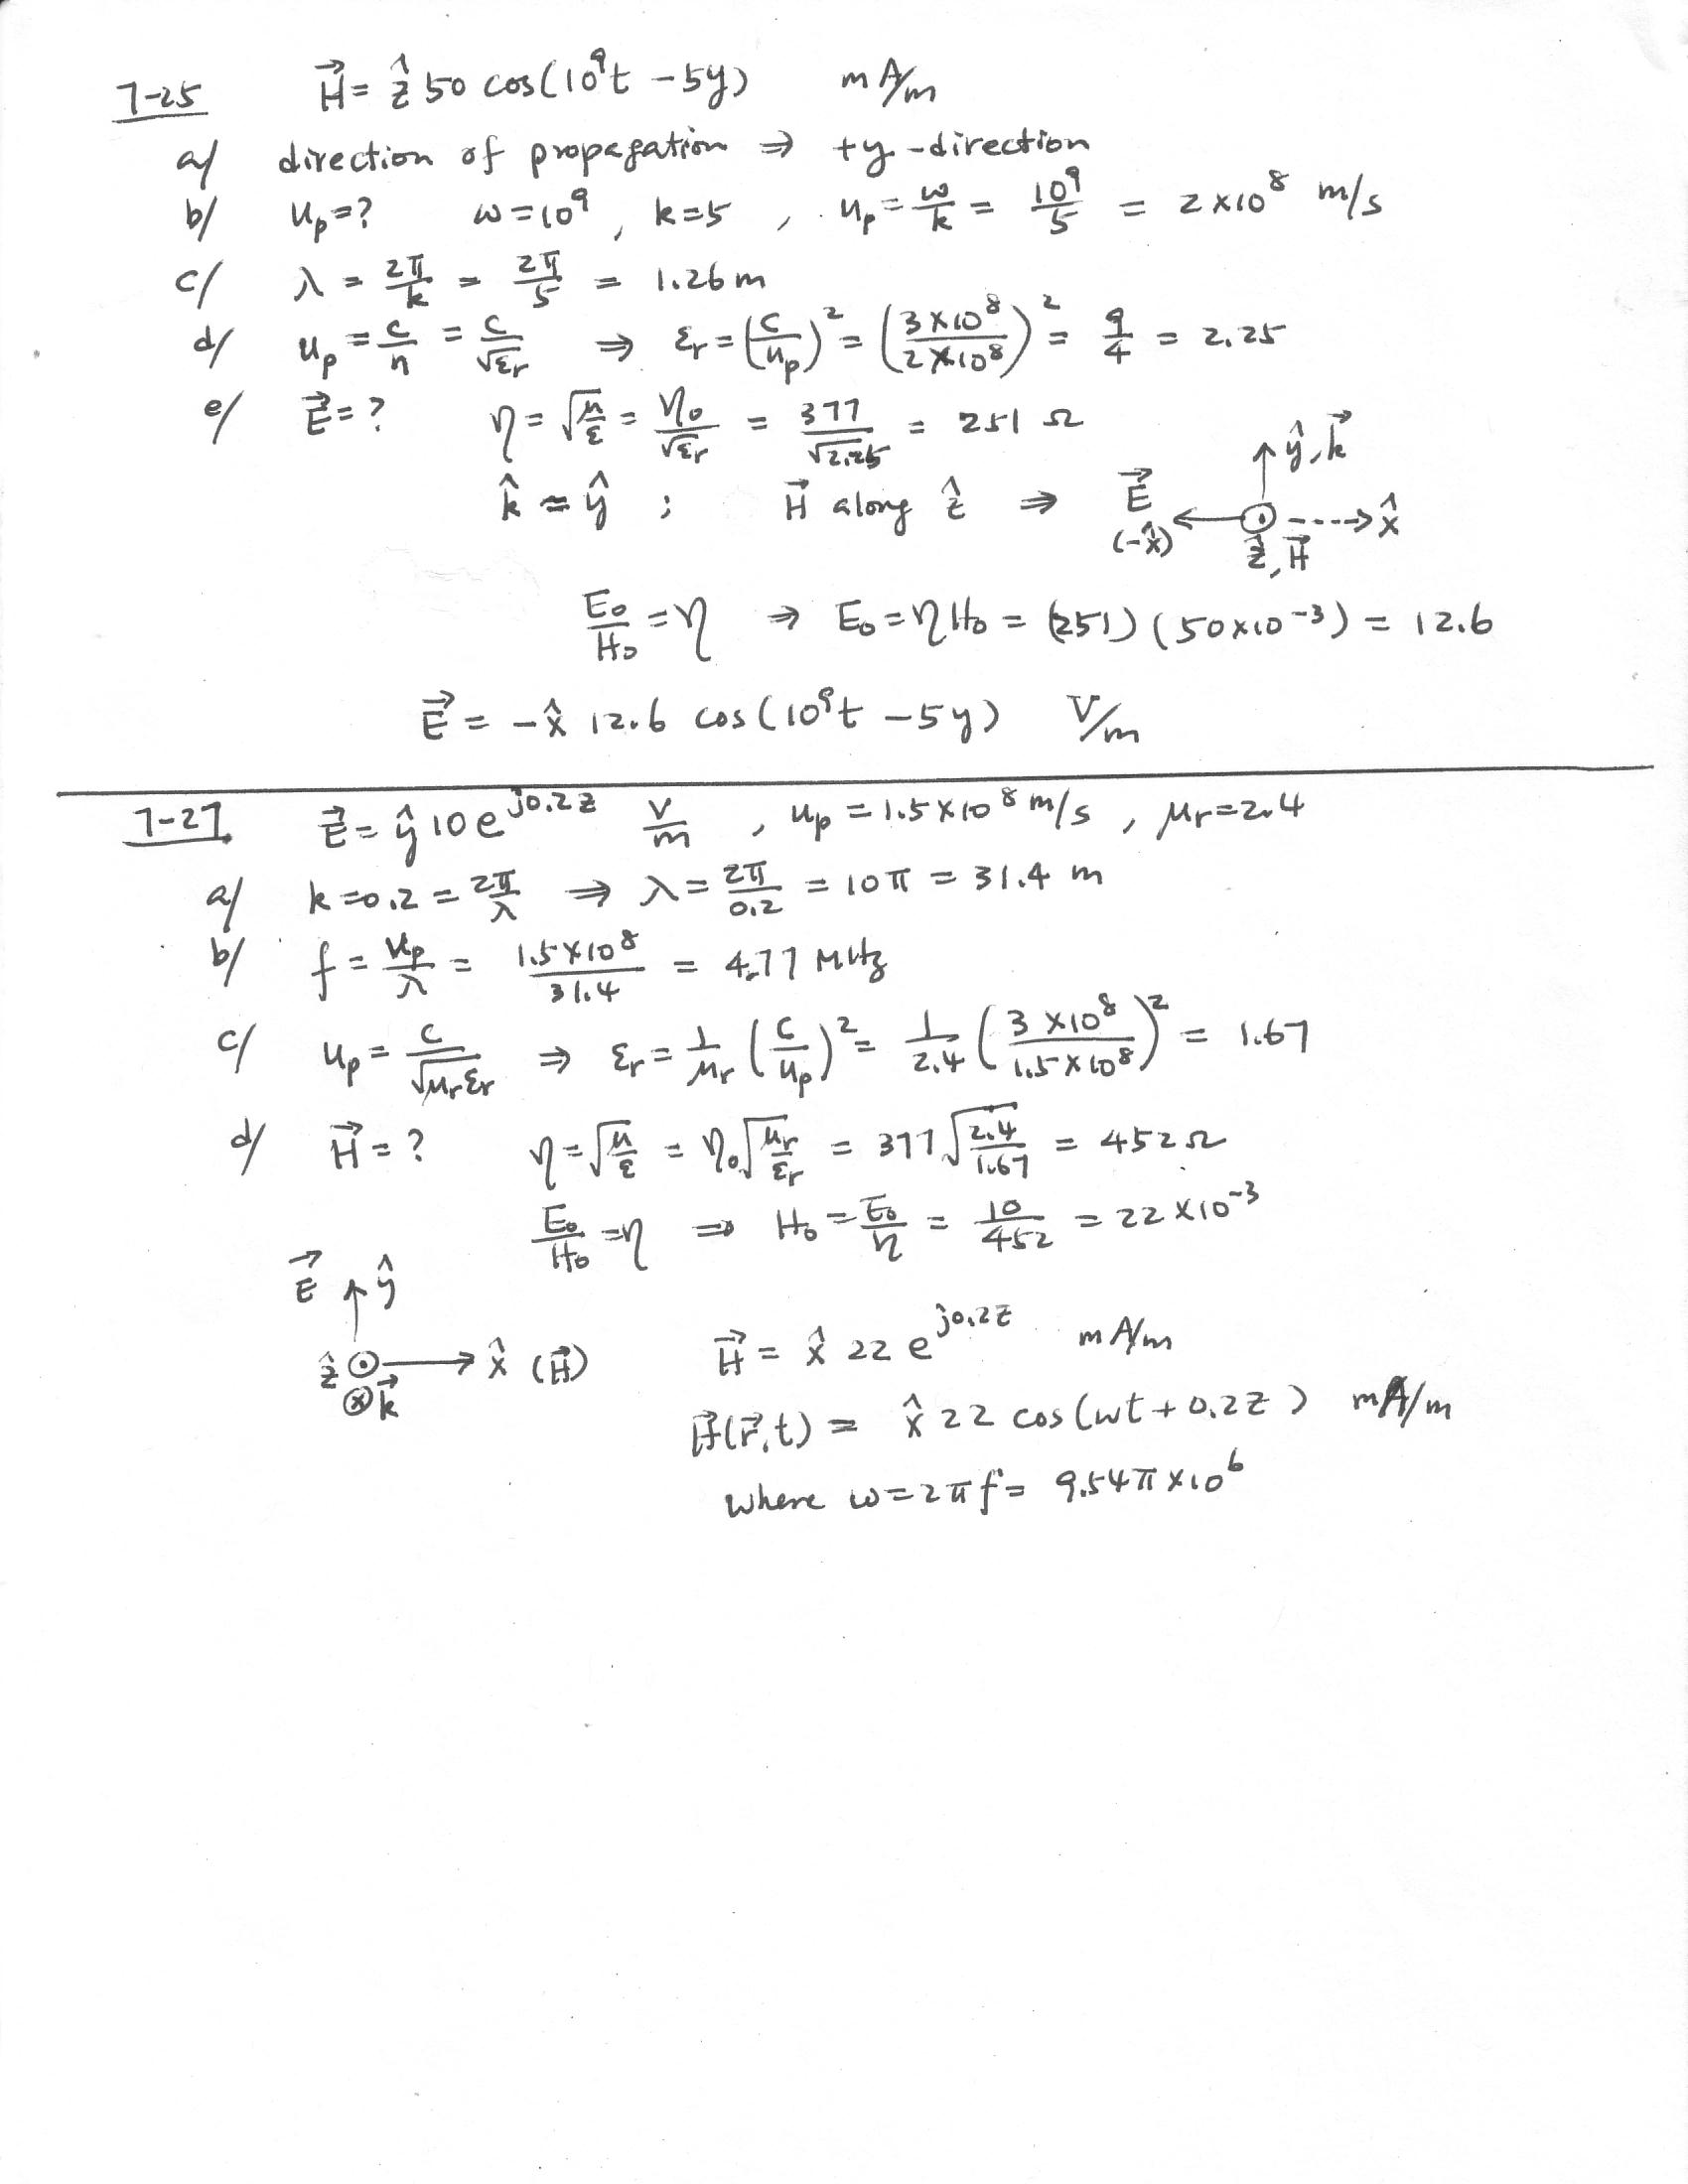 7-25 H⃗ = ẑ 50 cos(10⁹t - 5y) mA/m
a/ direction of propagation ⇒ +y-direction
b/ u_p = ? ω = 10⁹, k = 5, u_p = ω/k = 10⁹/5 = 2×10⁸ m/s
c/ λ = 2π/k = 2π/5 = 1.26 m
d/ u_p = c/n = c/√ε_r ⇒ ε_r = (c/u_p)² = (3×10⁸/2×10⁸)² = 9/4 = 2.25
e/ E⃗ = ? η = √(μ/ε) = η₀/√ε_r = 377/√2.25 = 251 Ω
k̂ = ŷ ; H⃗ along ẑ ⇒ E⃗ (-x̂) ŷ, k⃗ x̂ ẑ, H⃗
E₀/H₀ = η ⇒ E₀ = ηH₀ = (251)(50×10⁻³) = 12.6
E⃗ = -x̂ 12.6 cos(10⁹t - 5y) V/m
7-27 E⃗ = ŷ 10 e^{j0.2z} V/m, u_p = 1.5×10⁸ m/s, μ_r = 2.4
a/ k = 0.2 = 2π/λ ⇒ λ = 2π/0.2 = 10π = 31.4 m
b/ f = u_p/λ = 1.5×10⁸/31.4 = 4.77 MHz
c/ u_p = c/√μ_rε_r ⇒ ε_r = 1/μ_r (c/u_p)² = 1/2.4 (3×10⁸/1.5×10⁸)² = 1.67
d/ H⃗ = ? η = √(μ/ε) = η₀√(μ_r/ε_r) = 377√(2.4/1.67) = 452 Ω
E₀/H₀ = η ⇒ H₀ = E₀/η = 10/452 = 22×10⁻³
E⃗ ŷ
ẑ x̂ (H⃗) H⃗ = x̂ 22 e^{j0.2z} mA/m
k⃗ H⃗(r⃗,t) = x̂ 22 cos(ωt + 0.2z) mA/m
where ω = 2πf = 9.54π×10⁶